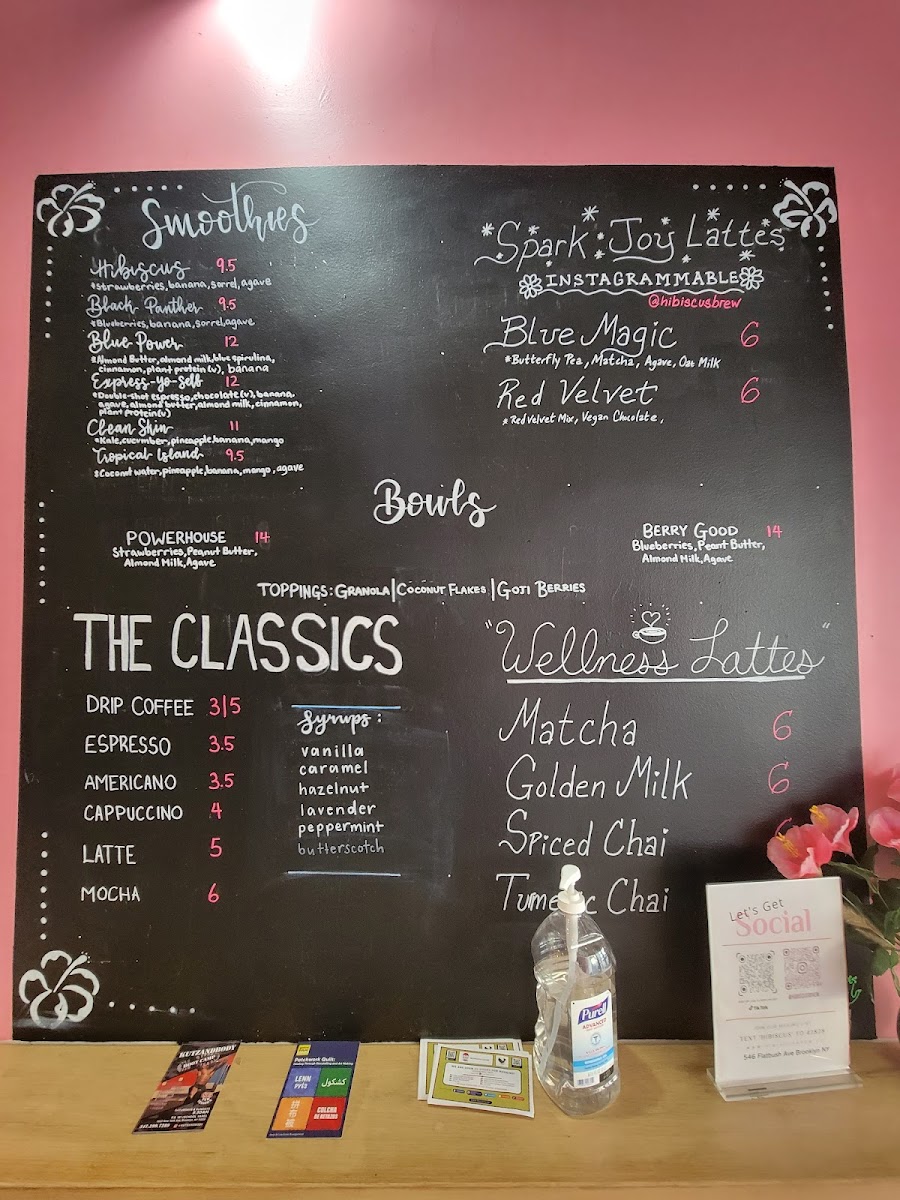 Smoothies
Hibiscus 9.5
*strawberries, banana, sorrel, agave
Black Panther 9.5
*Blueberries, banana, sorrel, agave
Blue Power 12
*Almond Butter, almond milk, blue spirulina,
cinnamon, plant protein (v), banana
Express-yo-self 12
*Double-shot espresso, chocolate (v), banana,
agave, almond butter, almond milk, cinnamon,
plant protein (v)
Clean Skin 11
*Kale, cucumber, pineapple, banana, mango
Tropical Island 9.5
*Coconut water, pineapple, banana, mango, agave
Spark Joy Lattes
INSTAGRAMMABLE
@hibiscusbrew
Blue Magic 6
*Butterfly Pea, Matcha, Agave, Oat Milk
Red Velvet 6
*Red Velvet Mix, Vegan Chocolate,
Bowls
POWERHOUSE 14
Strawberries, Peanut Butter,
Almond Milk, Agave
BERRY GOOD 14
Blueberries, Peant Butter,
Almond Milk, Agave
TOPPINGS: GRANOLA | COCONUT FLAKES | GOJI BERRIES
THE CLASSICS
DRIP COFFEE 3|5
ESPRESSO 3.5
AMERICANO 3.5
CAPPUCCINO 4
LATTE 5
MOCHA 6
Syrups:
vanilla
caramel
hazelnut
lavender
peppermint
butterscotch
"Wellness Lattes"
Matcha 6
Golden Milk 6
Spiced Chai
Chai
KUTZANDBODY
BODY CAMP
Patchwork Quilt:
LENN
PYÈS
کشکول
COLCHA
DE RETAZOS
Purell
ADVANCED
Let's Get
Social
TEXT "HIBISCUS" TO
546 Flatbush Ave Brooklyn NY